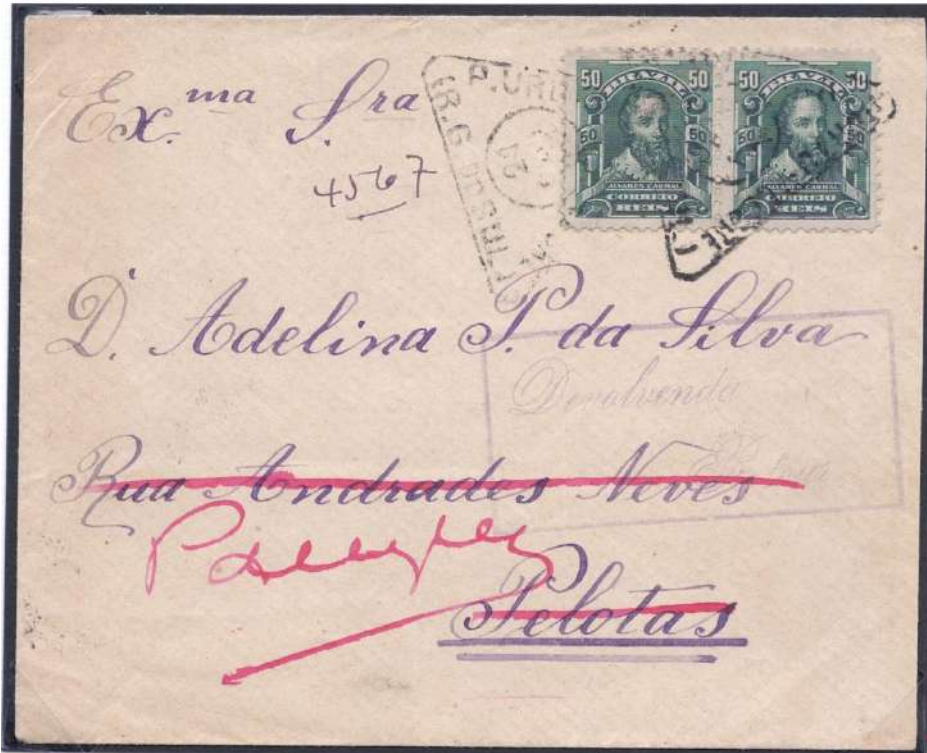 Ex.ma Sra
4567
50 BRAZIL 50
50 50
ALVARES CABRAL
CORREIO
REIS
50 BRAZIL 50
50 50
ALVARES CABRAL
CORREIO
REIS
P.URB
D. Adelina P. da Silva
Devolvendo
Rua Andrades Neves
Pelotas